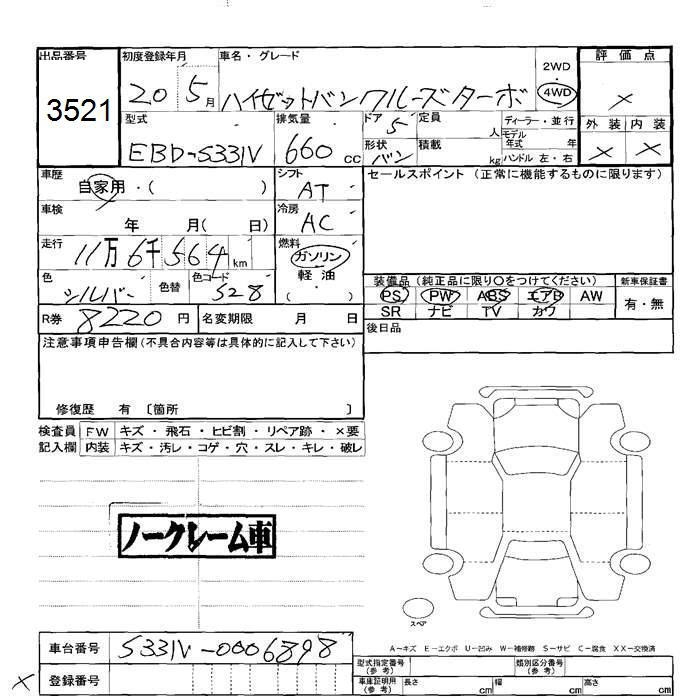 出品番号 初度登録年月 車名・グレード 2WD・4WD 評価点
3521 20 5月 ハイゼットバンクルーズターボ ×
型式 排気量 ドア 5 定員 人 ディーラー・並行 外装 内装
EBD-S331V 660cc 形状 バン 積載 kg モデル年式 年 ハンドル 左・右 × ×
車歴 自家用・( ) シフト AT セールスポイント(正常に機能するものに限ります)
車検 年 月( 日) 冷房 AC
走行 11万6千564km 燃料 ガソリン
軽油
色 シルバー 色替 色コード S28 ( )
装備品(純正品に限り○をつけてください) 新車保証書
PS PW ABS エアB AW 有・無
SR ナビ TV カワ
R券 8220円 名変期限 月 日 後日品
注意事項申告欄(不具合内容等は具体的に記入して下さい)
修復歴 有 〔箇所 〕
検査員 FW キズ・飛石・ヒビ割・リペア跡・×要
記入欄 内装 キズ・汚レ・コゲ・穴・スレ・キレ・破レ
ノークレーム車
スペア
A－キズ E－エクボ U－凹み W－補修跡 S－サビ C－腐食 XX－交換済
車台番号 S331V-0006898
型式指定番号(参考) 類別区分番号(参考)
× 登録番号
車庫証明用(参考) 長さ cm 幅 cm 高さ cm